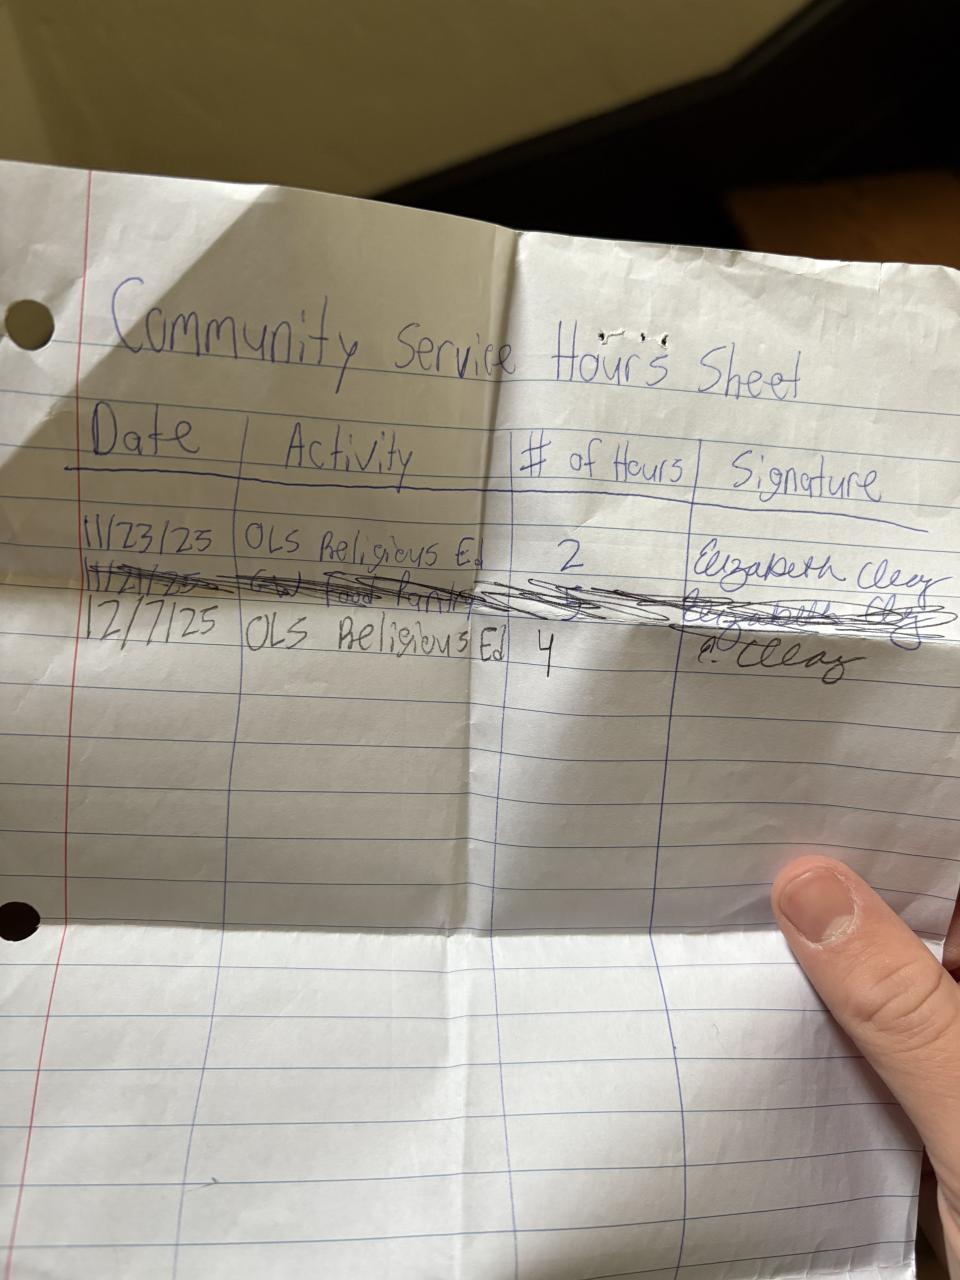 Community Service Hours Sheet
Date Activity # of Hours Signature
11/23/25 OLS Religious Ed 2 Elizabeth Cleay
11/21/25 GW Food Pantry 5 Elizabeth
12/7/25 OLS Religious Ed 4 E. Cleay